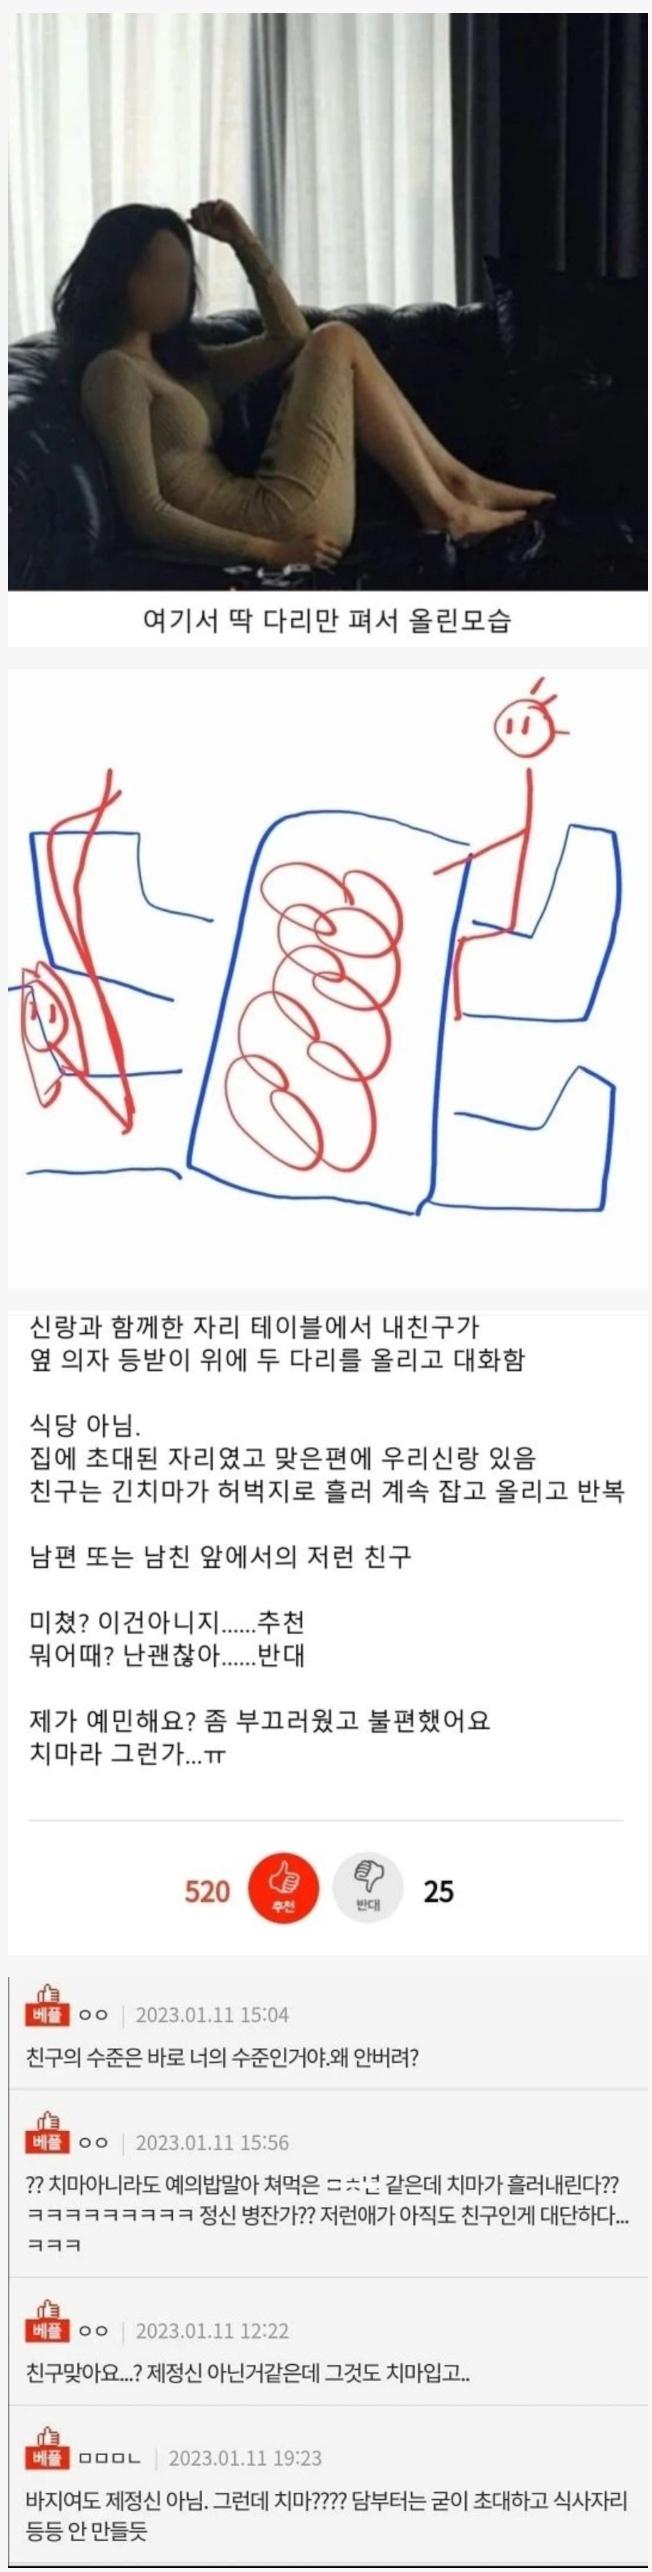 여기서 딱 다리만 펴서 올린모습
신랑과 함께한 자리 테이블에서 내친구가
옆 의자 등받이 위에 두 다리를 올리고 대화함
식당 아님.
집에 초대된 자리였고 맞은편에 우리신랑 있음
친구는 긴치마가 허벅지로 흘러 계속 잡고 올리고 반복
남편 또는 남친 앞에서의 저런 친구
미쳤? 이건아니지......추천
뭐어때? 난괜찮아......반대
제가 예민해요? 좀 부끄러웠고 불편했어요
치마라 그런가...ㅠ
520 추천 반대 25
베플 ㅇㅇ | 2023.01.11 15:04
친구의 수준은 바로 너의 수준인거야.왜 안버려?
베플 ㅇㅇ | 2023.01.11 15:56
?? 치마아니라도 예의밥말아 쳐먹은 ㅁㅊ년 같은데 치마가 흘러내린다??
ㅋㅋㅋㅋㅋㅋㅋㅋㅋ 정신 병잔가?? 저런애가 아직도 친구인게 대단하다...
ㅋㅋㅋ
베플 ㅇㅇ | 2023.01.11 12:22
친구맞아요...? 제정신 아닌거같은데 그것도 치마입고..
베플 ㅁㅁㅁㄴ | 2023.01.11 19:23
바지여도 제정신 아님. 그런데 치마???? 담부터는 굳이 초대하고 식사자리
등등 안 만들듯